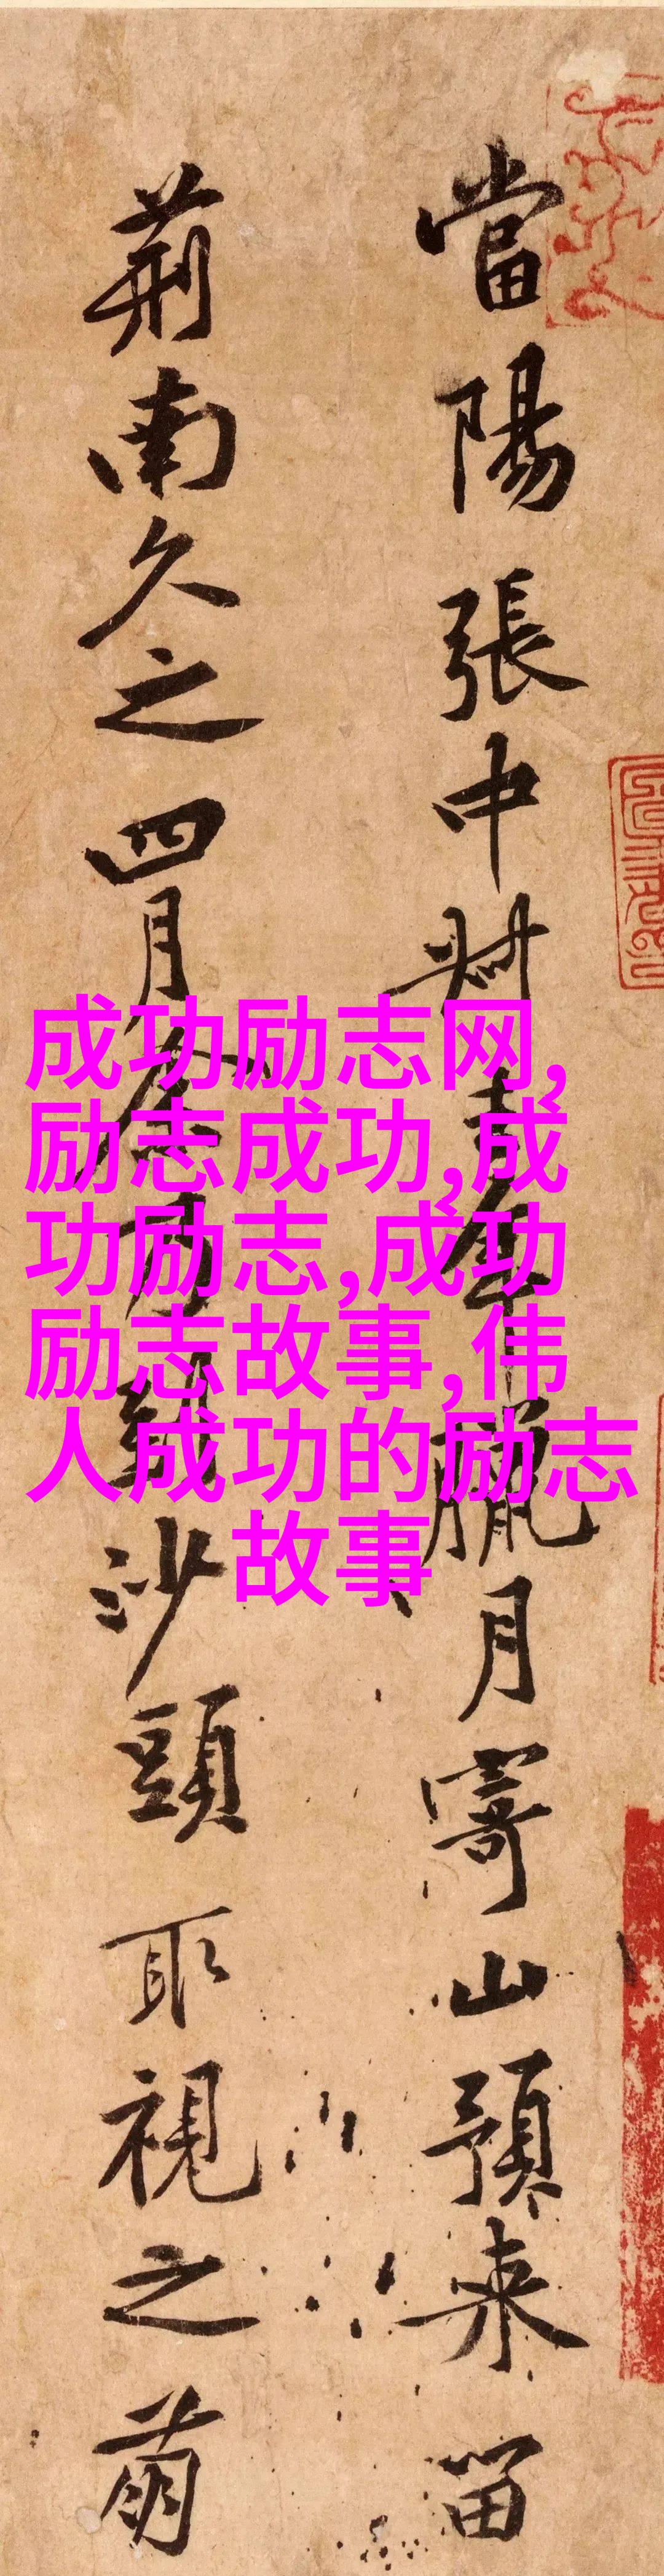 當陽張中叔去年臘月寄山預來留
荊南久之四月余乃到沙頭取視之萌
成功励志网,
励志成功,成
功励志,成功
励志故事,伟
人成功的励志
故事